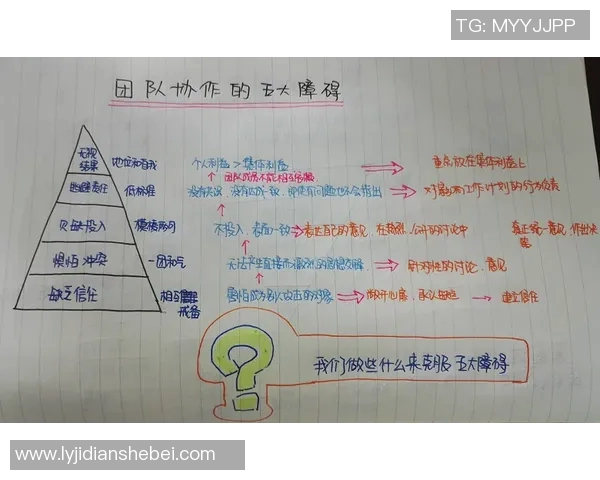 TG: MYYJJPP
团队协作的五大障碍
无视结果 地位和自我 个人利益>集体利益 重点放在集体利益上
团队成员不能相互
逃避责任 低标准 对影响工作计划的行为负责
欠缺投入 模棱两可 不投入,表面一致 表达自己的意见,在 公开的讨论中 真正统一意见,作出决策
惧怕冲突 一团和气 无法产生直接而激烈的思想交锋 针对性的讨论,意见
缺乏信任 相互 戒备 害怕成为别人攻击的对象 敞开心扉,承认 建立信任
我们做些什么来克服五大障碍
www.lyjidianshebei.com